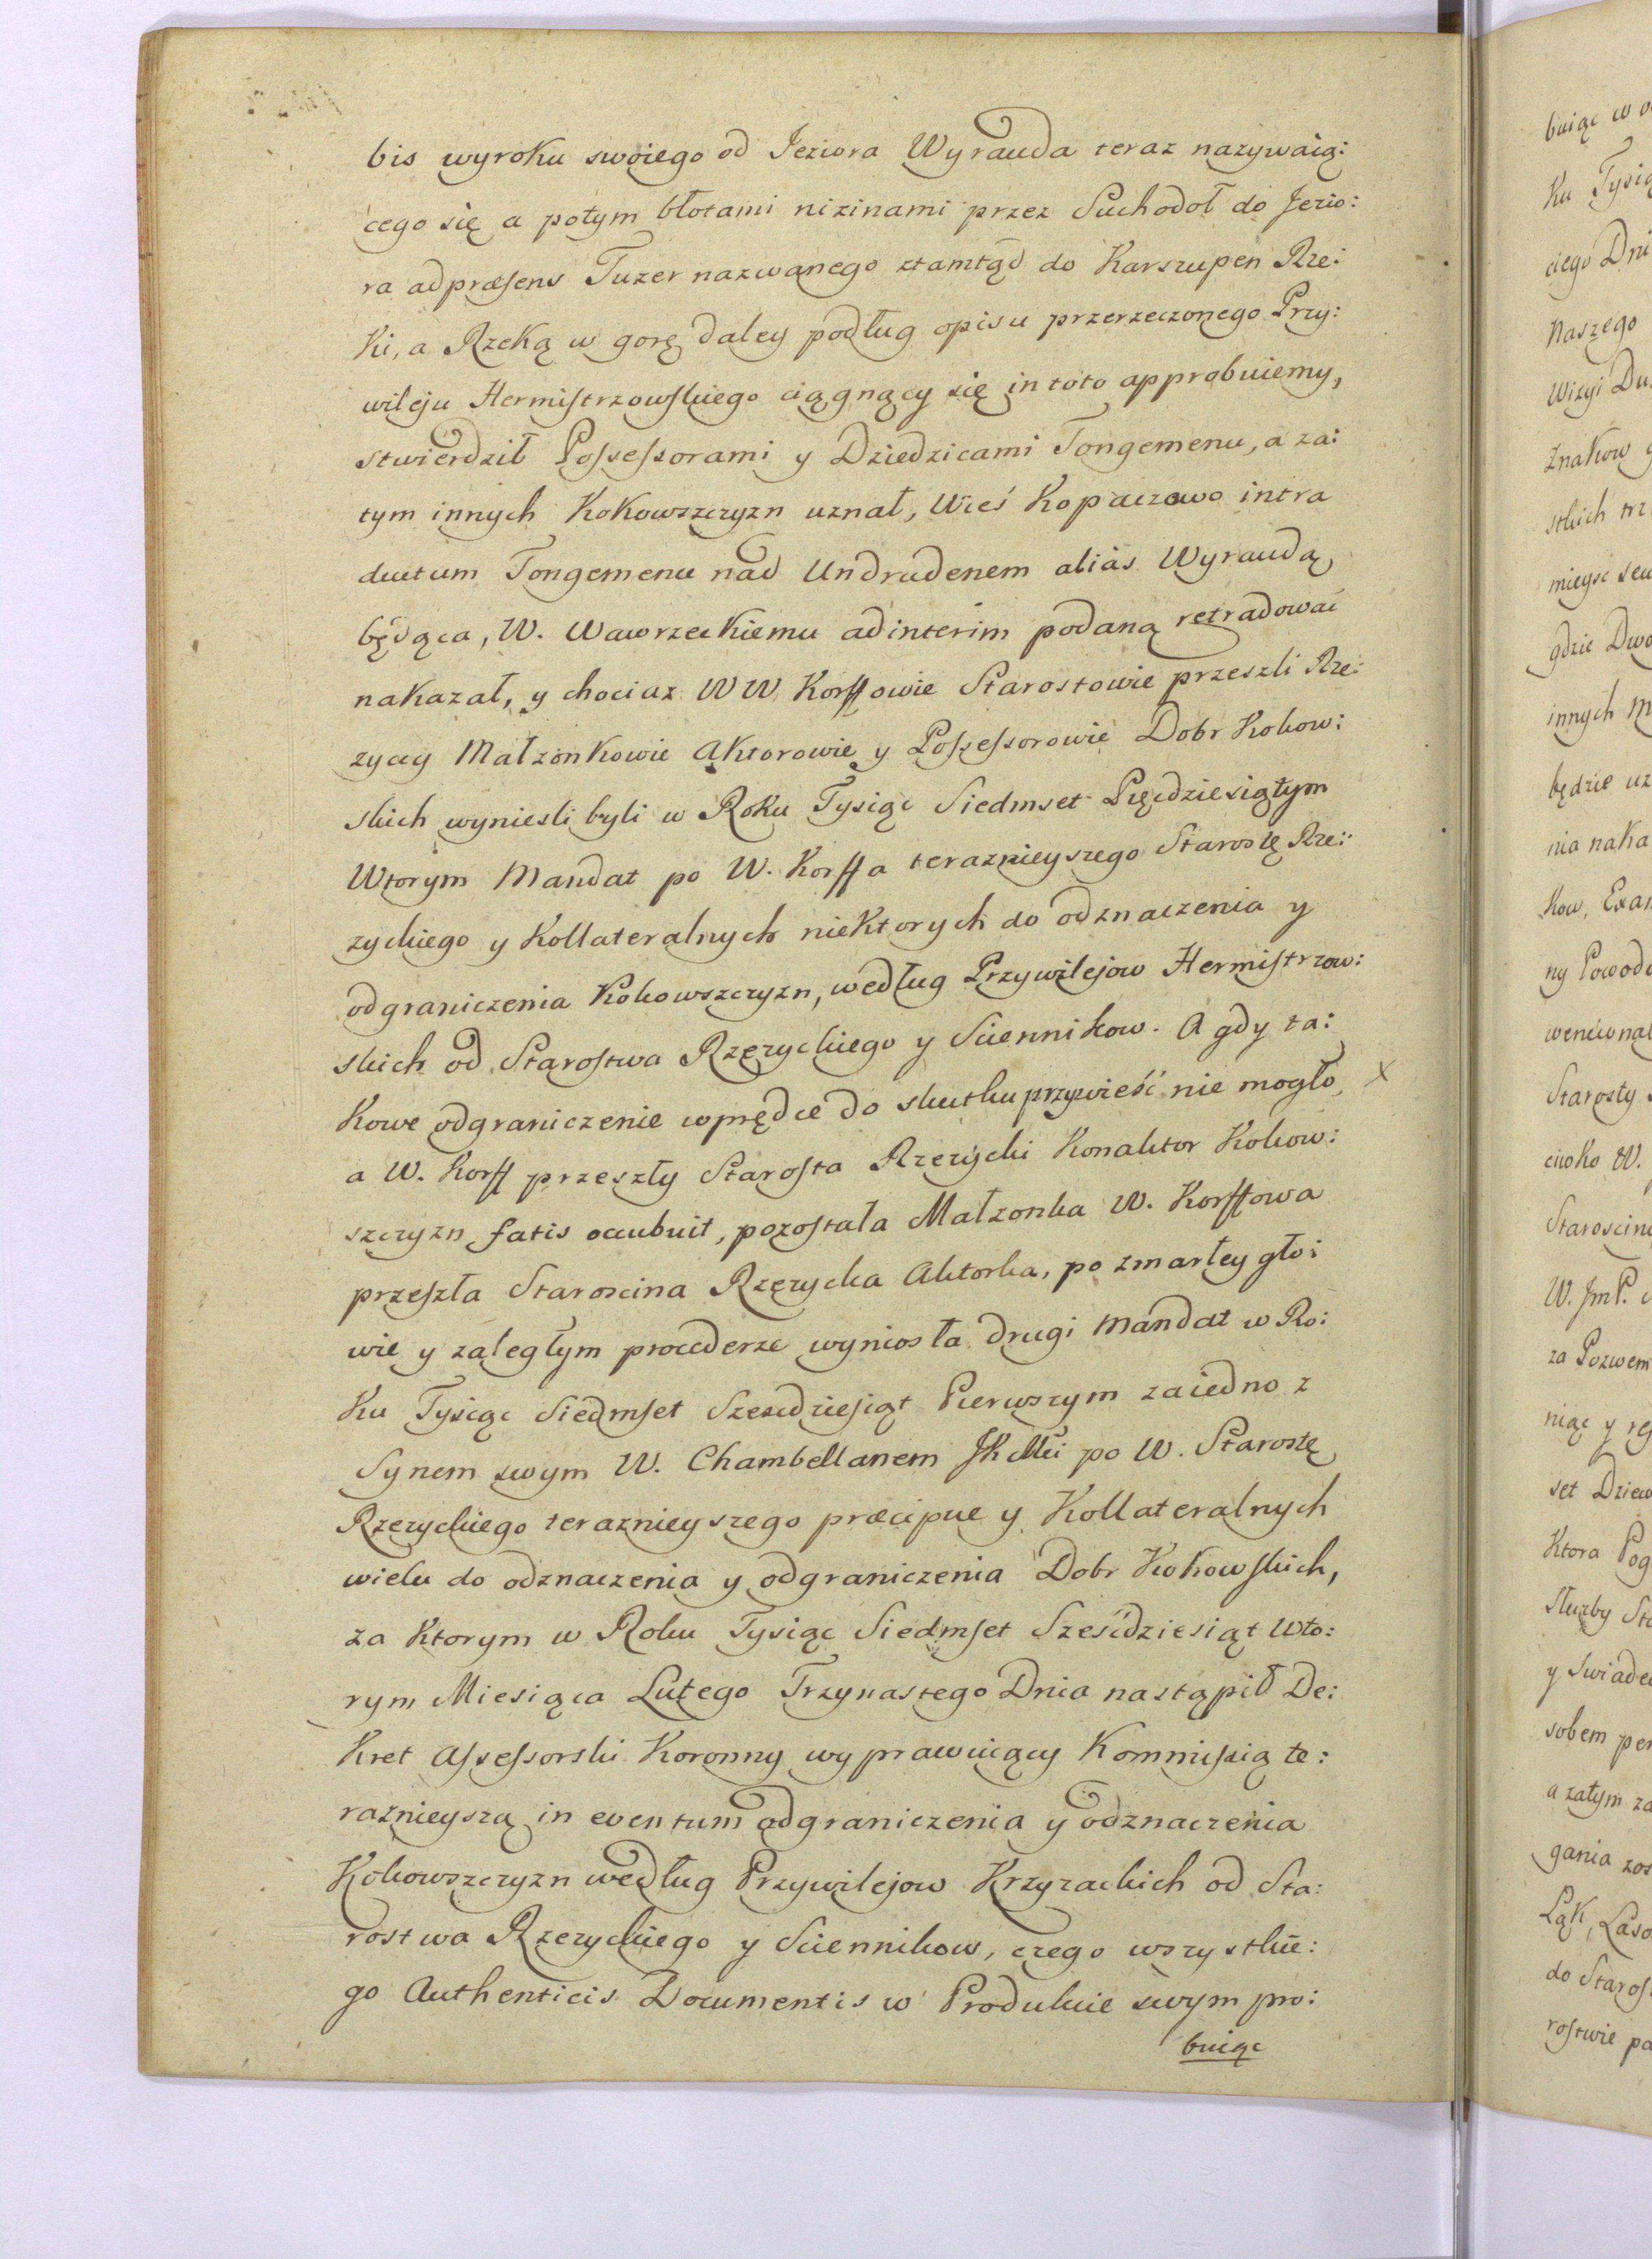 bis wyroku swoiego od Jeziora Wyrauda teraz nazywaią:
cego się a potym błotami nizinami przez Suchodoł do Jezio:
ra adpræsens Tuzer nazwanego ztamtąd do Karszupen Rze:
ki, a Rzeką w gorę daley podług opisu przerzeczonego Przy:
wileju Hermistrzowskiego ciągnący się in toto approbuiemy,
stwierdził Possessorami y Dziedzicami Tongemenu, a za:
tym innych Kokowszczyzn uznał, Wieś Kopaczowo intra
ductum Tongemenu nad Undrudenem alias Wyraudą
będąca, W. Wawrzeckiemu adinterim podaną retradować
nakazał, y chociaz WW Korffowie Starostowie przeszli Rze:
zyccy Małzonkowie Aktorowie y Possessorowie Dobr Kokow:
skich wyniesli byli w Roku Tysiąc Siedmset Pięcdziesiątym
Wtorym Mandat po W. Korffa teraznieyszego Starostę Rze:
zyckiego y Kollateralnych niektorych do odznaczenia y
odgraniczenia Kokowszczyzn, według Przywilejow Hermistrzow:
skich od Starostwa Rzezyckiego y Sciennikow. A gdy ta:
kowe odgraniczenie wprędce do skutku przywieść nie mogło, x
a W. Korff przeszły Starosta Rzezycki Konaktor Kokow:
szczyzn fatis occubuit, pozostała Małzonka W. Korffowa
przeszła Staroscina Rzezycka Aktorka, po zmarłey gło:
wie y zaległym procederze wyniosła drugi Mandat w Ro:
ku Tysiąc Siedmset Szescdziesiąt Pierwszym zaiedno z
Synem swym W. Chambellanem JKMci po W. Starostę
Rzezyckiego teraznieyszego præcipue y Kollateralnych
wielu do odznaczenia y odgraniczenia Dobr Kokowskich,
za ktorym w Roku Tysiąc Siedmset Sześćdziesiąt Wto:
rym Miesiąca Lutego Trzynastego Dnia nastąpił De:
kret Assessorski Koronny wyprawuiący Kommissią te:
raznieyszą in eventum odgraniczenia y odznaczenia
Kokowszczyzn według Przywilejow Krzyzackich od Sta:
rostwa Rzezyckiego y Sciennikow, czego wszystkie:
go Authenticis Documentis w Produkcie swym pro:
buiąc